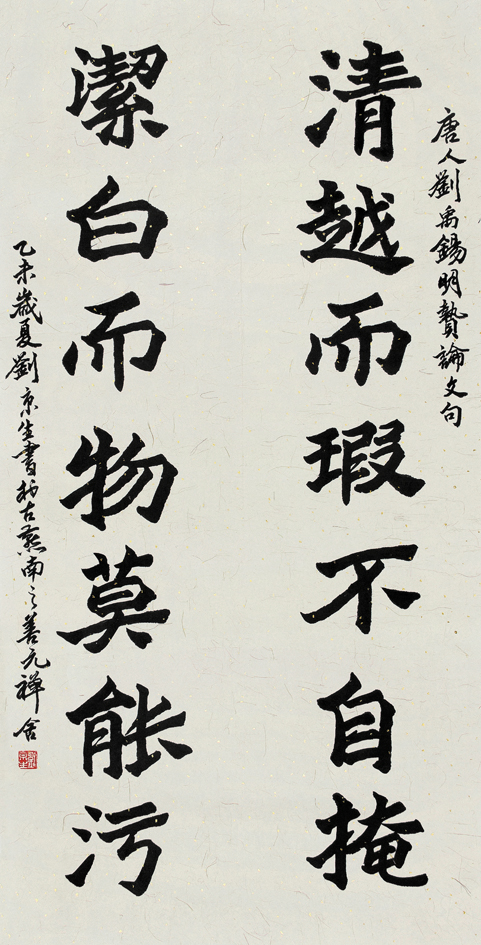 唐人劉禹錫明贄論文句
清越而瑕不自掩
潔白而物莫能污
乙未歲夏劉京生書於古燕南之善元禪舍